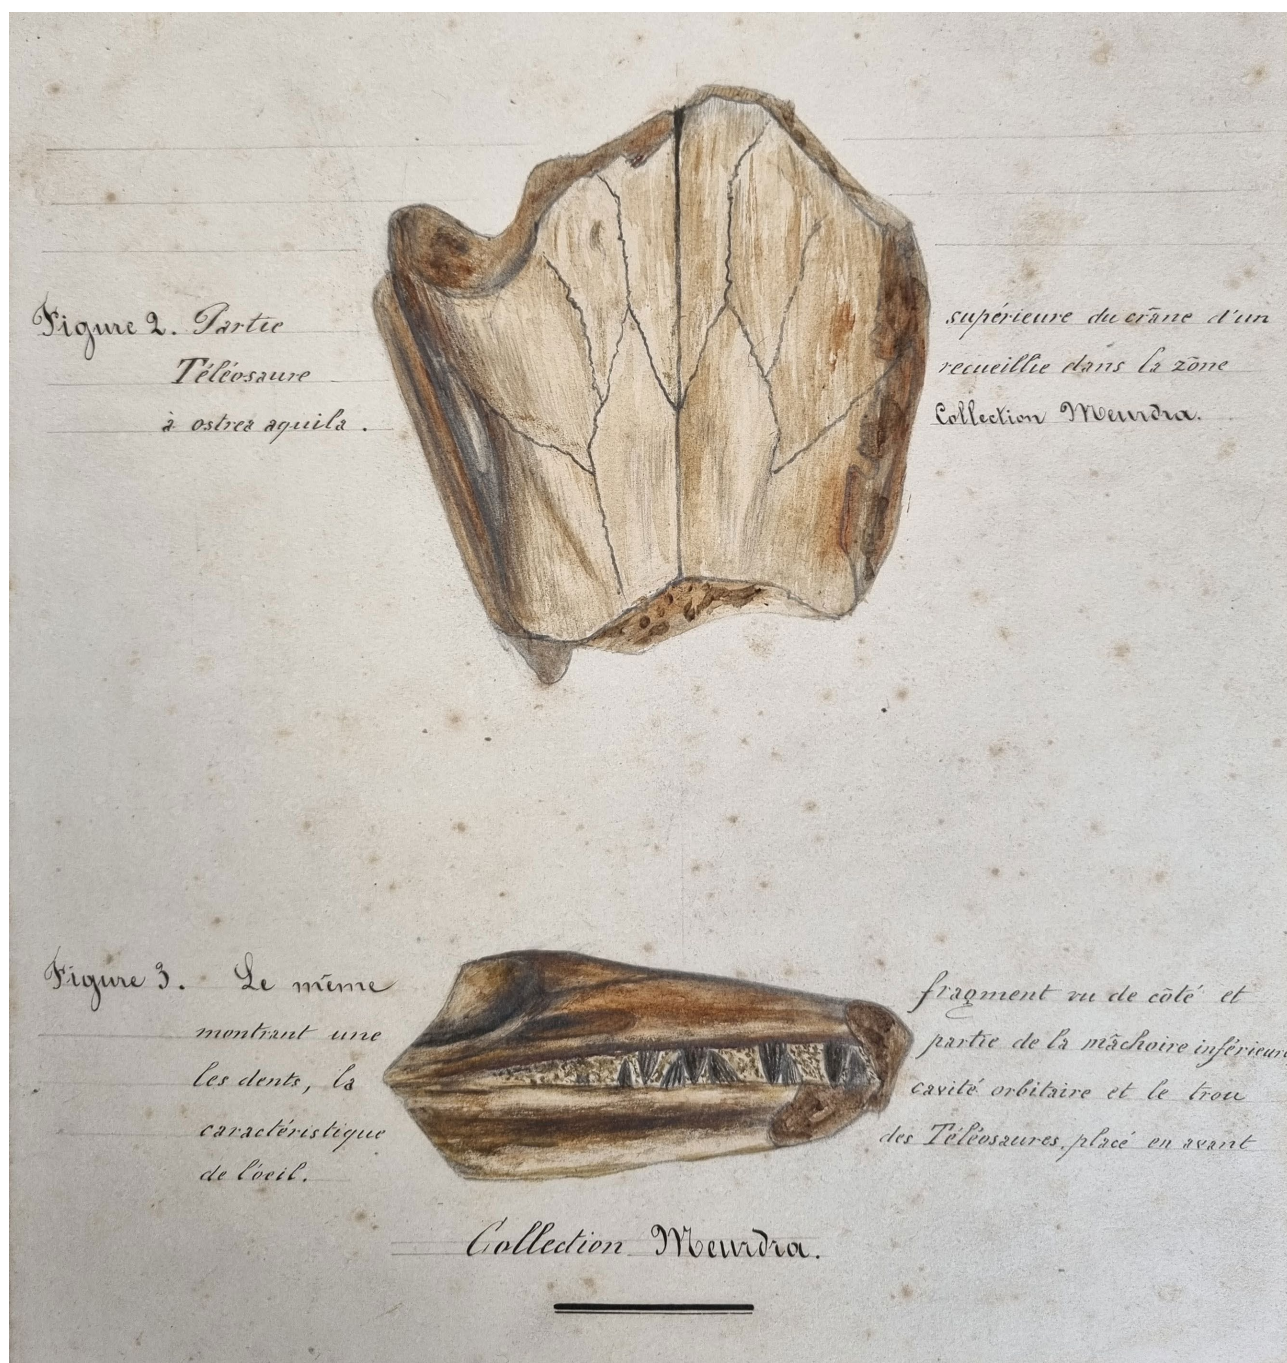 Figure 2. Partie supérieure du crâne d'un
Téléosaure recueillie dans la zône
à ostrea aquila. Collection Meurdra.
Figure 3. Le même fragment vu de côté et
montrant une partie de la mâchoire inférieure
les dents, la cavité orbitaire et le trou
caractéristique des Téléosaures, placé en avant
de l'oeil.
Collection Meurdra.